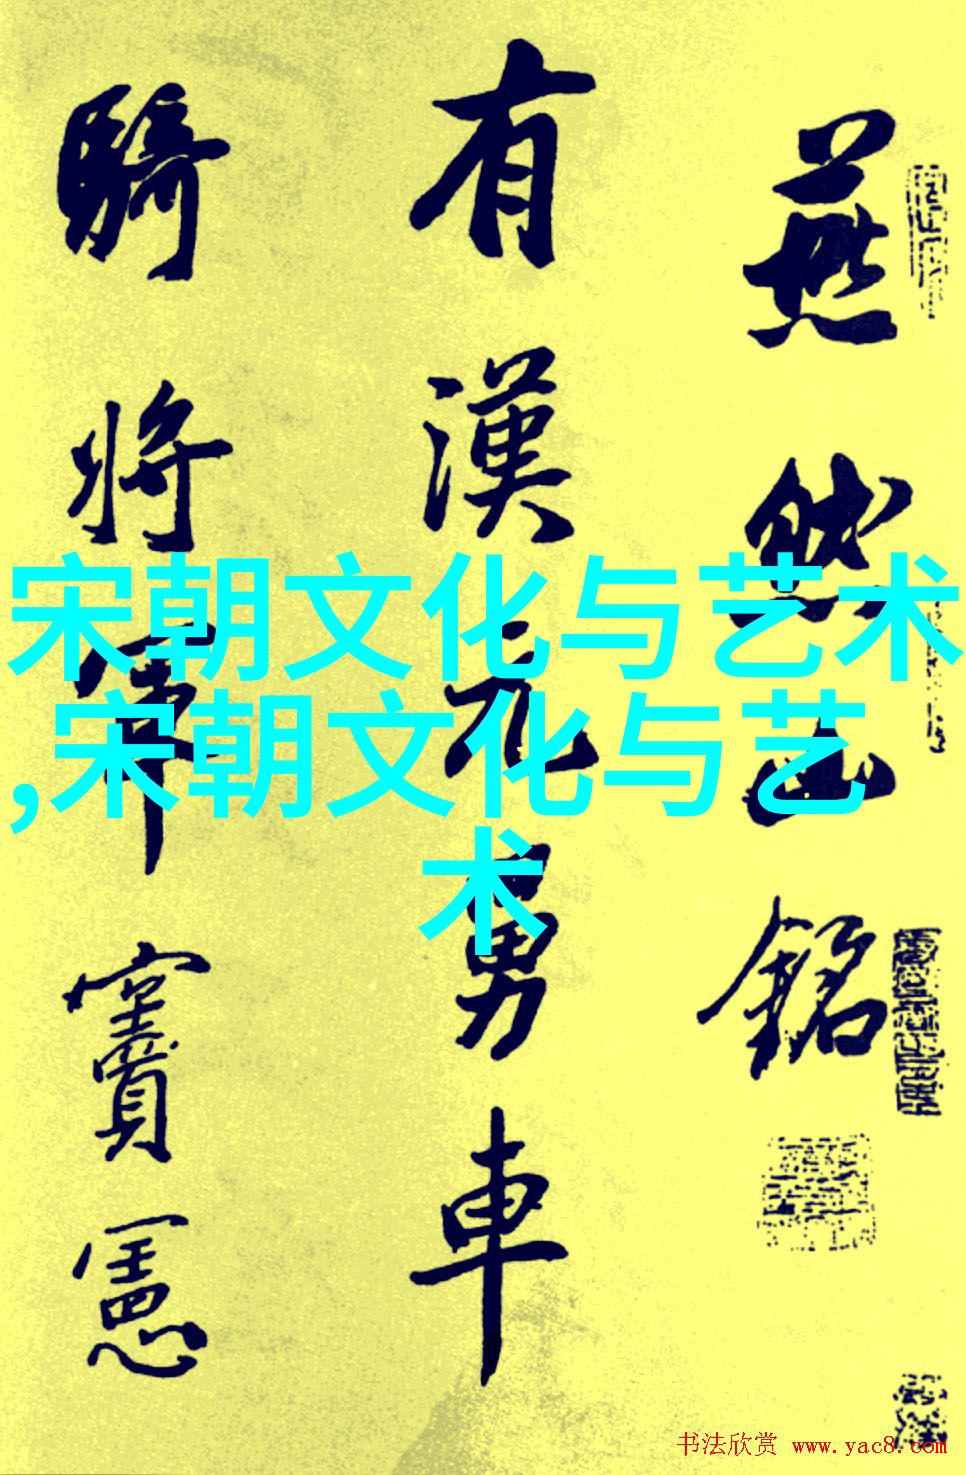 燕然山銘
有漢元舅車
騎將軍竇憲
宋朝文化与艺术
,宋朝文化与艺
术
书法欣赏 www.yac8.com